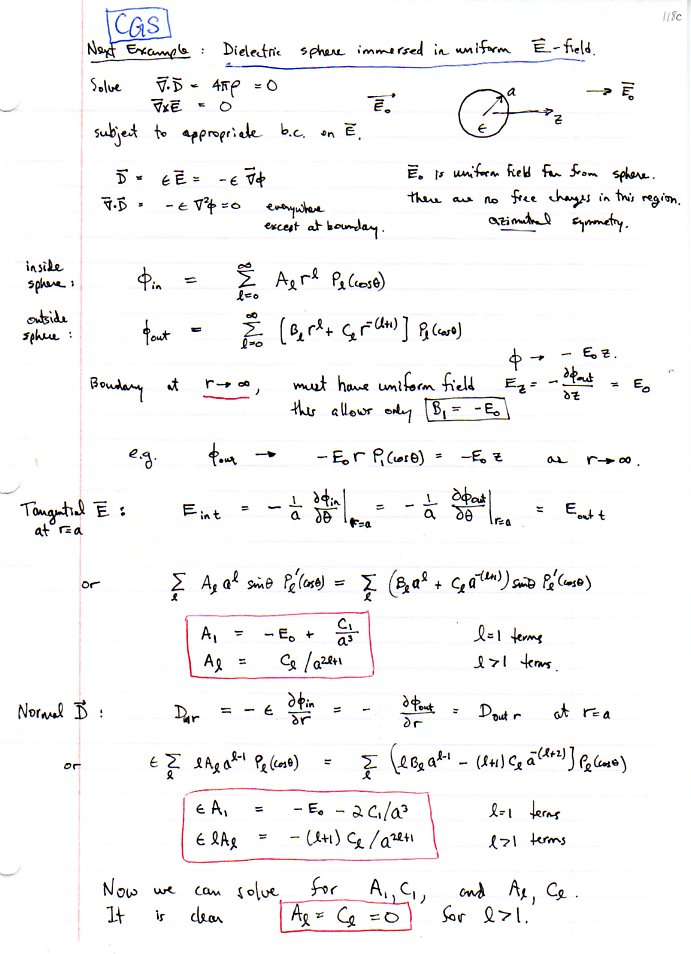 CGS
118c
Next Example : Dielectric sphere immersed in uniform E⃗-field.
Solve ∇⃗·D⃗ = 4πρ = 0
∇⃗×E⃗ = 0
E⃗₀
a
ε
z
→ E⃗₀
subject to appropriate b.c. on E⃗.
D⃗ = εE⃗ = -ε∇⃗ϕ
E⃗₀ is uniform field far from sphere.
∇⃗·D⃗ = -ε∇²ϕ = 0 everywhere except at boundary.
there are no free charges in this region.
azimuthal symmetry.
inside sphere: ϕ_in = Σ_{l=0}^{∞} A_l r^l P_l(cosθ)
outside sphere: ϕ_out = Σ_{l=0}^{∞} [B_l r^l + C_l r^{-(l+1)}] P_l(cosθ)
ϕ → - E₀z.
Boundary at r→∞, must have uniform field E_z = -∂ϕ_out/∂z = E₀
this allows only B₁ = -E₀
e.g. ϕ_out → -E₀ r P₁(cosθ) = -E₀ z as r→∞.
Tangential E⃗ : at r=a E_{in t} = -1/a ∂ϕ_in/∂θ |_{r=a} = -1/a ∂ϕ_out/∂θ |_{r=a} = E_{out t}
or Σ_l A_l a^l sinθ P_l'(cosθ) = Σ_l (B_l a^l + C_l a^{-(l+1)}) sinθ P_l'(cosθ)
A₁ = -E₀ + C₁/a³ l=1 terms
A_l = C_l/a^{2l+1} l>1 terms.
Normal D⃗ : D_{in r} = -ε ∂ϕ_in/∂r = - ∂ϕ_out/∂r = D_{out r} at r=a
or ε Σ_l l A_l a^{l-1} P_l(cosθ) = Σ_l [l B_l a^{l-1} - (l+1) C_l a^{-(l+2)}] P_l(cosθ)
εA₁ = -E₀ - 2C₁/a³ l=1 terms
εlA_l = -(l+1) C_l/a^{2l+1} l>1 terms
Now we can solve for A₁, C₁, and A_l, C_l.
It is clear A_l = C_l = 0 for l>1.